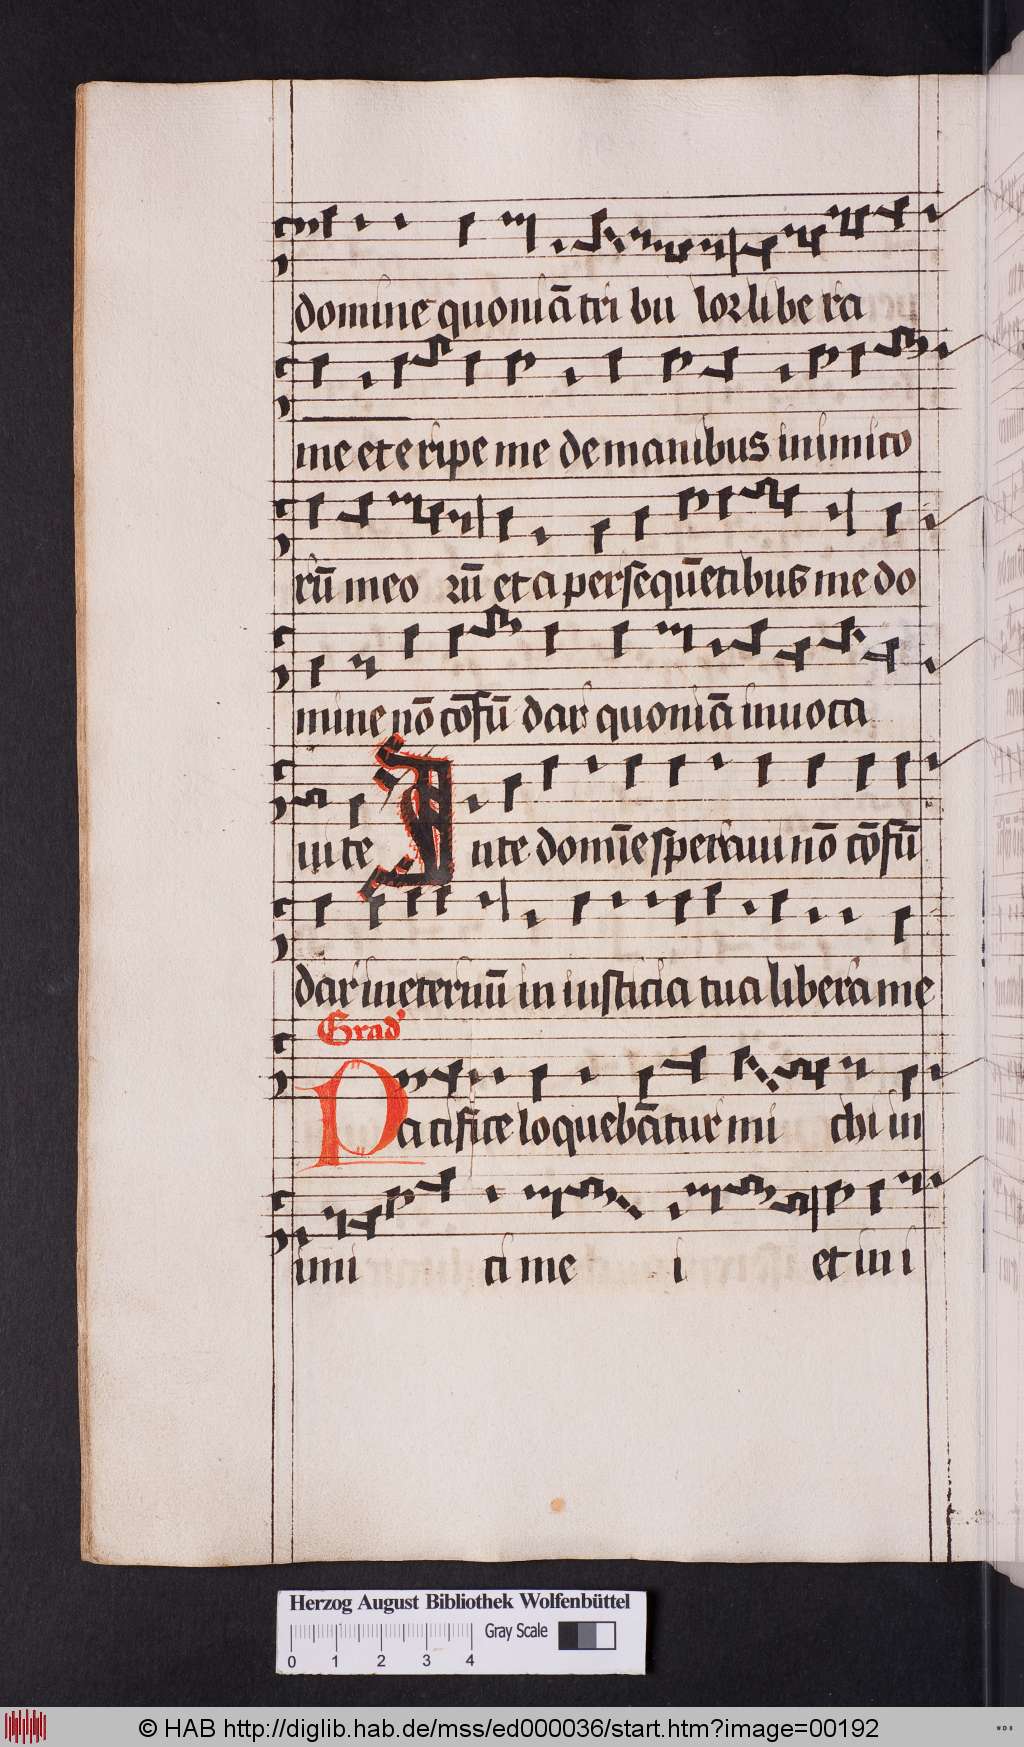 domine quoniā tri bu lor libe ra
me et e ripe me de manibus inimico
rū meo rū et a persequētibus me do
mine nō cōfū dar quoniā inuoca
ui te In te domīe speraui nō cōfū
dar ineternū in iusticia tua libera me
Grad'
Pacifice loquebātur mi chi in
imi ci me i et in i
Herzog August Bibliothek Wolfenbüttel
0 1 2 3 4 Gray Scale
© HAB http://diglib.hab.de/mss/ed000036/start.htm?image=00192